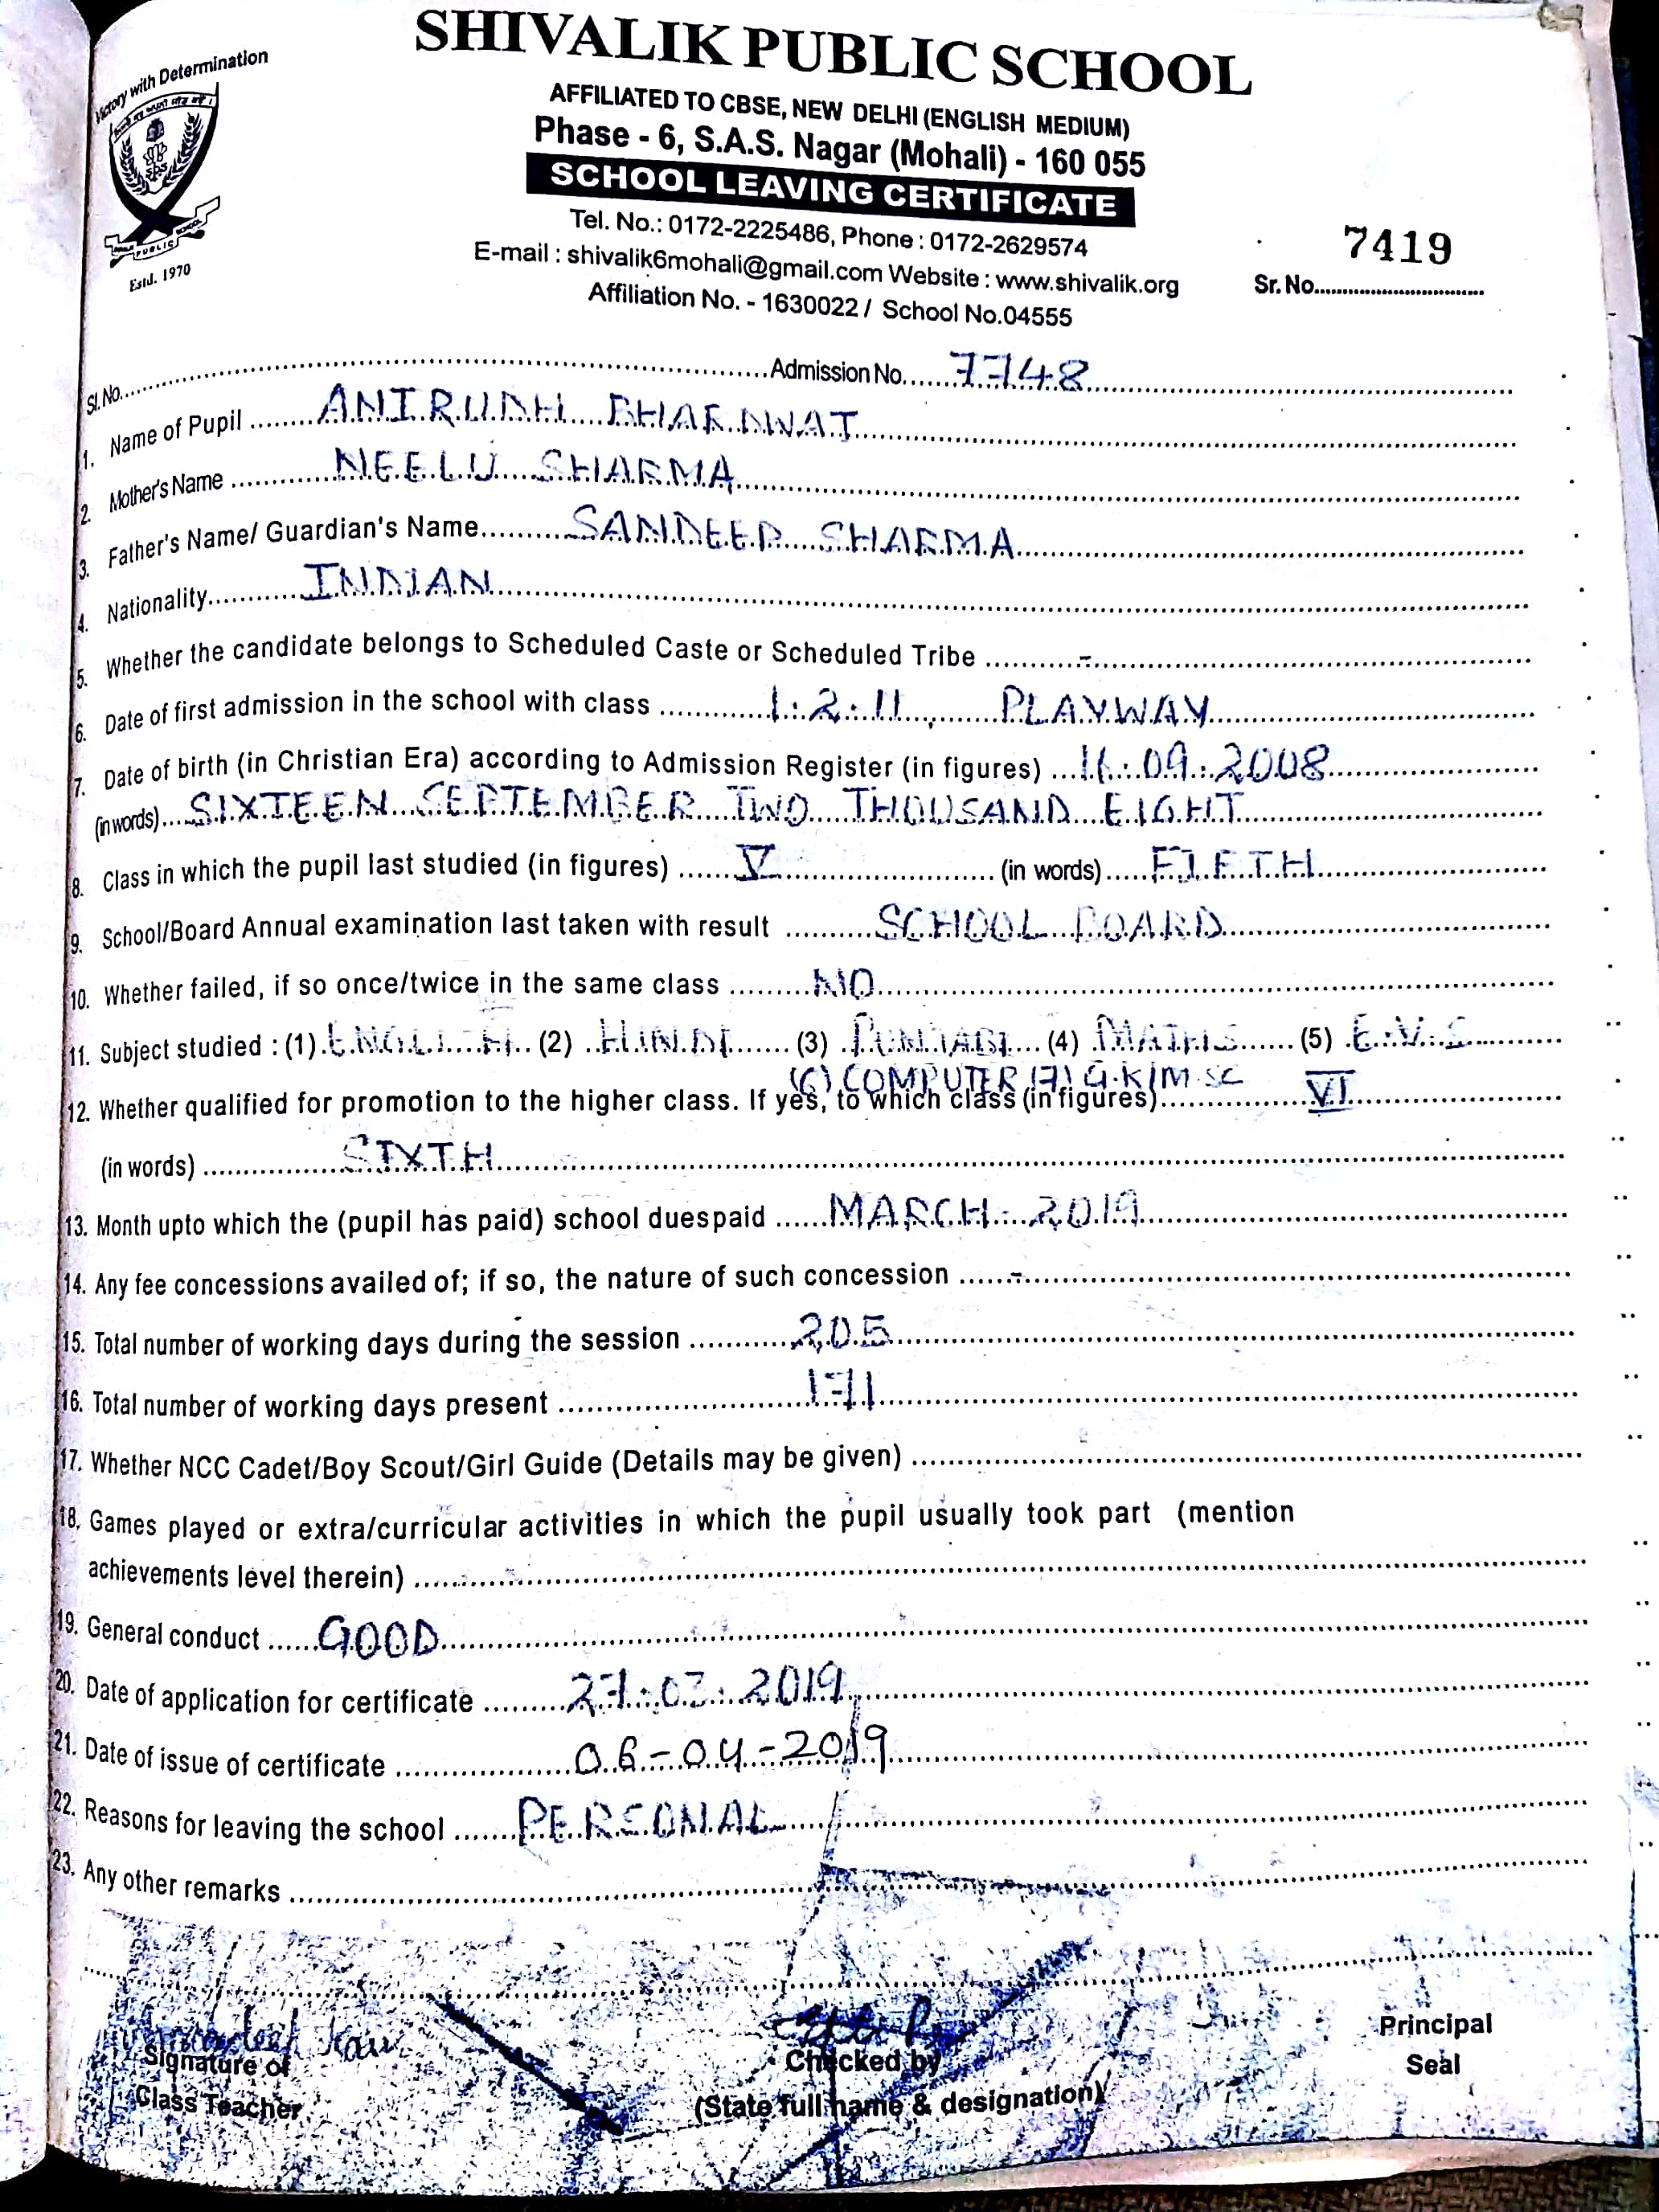 Victory with Determination
Estd. 1970
SHIVALIK PUBLIC SCHOOL
AFFILIATED TO CBSE, NEW DELHI (ENGLISH MEDIUM)
Phase - 6, S.A.S. Nagar (Mohali) - 160 055
SCHOOL LEAVING CERTIFICATE
Tel. No.: 0172-2225486, Phone : 0172-2629574
E-mail : shivalik6mohali@gmail.com Website : www.shivalik.org
Affiliation No. - 1630022 / School No.04555
7419
Sr. No.
Sl. No. Admission No. 7748
1. Name of Pupil ANIRUDH BHARDWAT
2. Mother's Name NEELU SHARMA
3. Father's Name/ Guardian's Name SANDEEP SHARMA
4. Nationality INDIAN
5. Whether the candidate belongs to Scheduled Caste or Scheduled Tribe -
6. Date of first admission in the school with class 1.2.11, PLAYWAY
7. Date of birth (in Christian Era) according to Admission Register (in figures) 16.09.2008
(in words) SIXTEEN SEPTEMBER TWO THOUSAND EIGHT
8. Class in which the pupil last studied (in figures) V (in words) FIFTH
9. School/Board Annual examination last taken with result SCHOOL BOARD
10. Whether failed, if so once/twice in the same class NO
11. Subject studied : (1) ENGLISH (2) HINDI (3) PUNJABI (4) MATHS (5) E.V.S
(6) COMPUTER (7) G.K/M.SC
12. Whether qualified for promotion to the higher class. If yes, to which class (in figures) VI
(in words) SIXTH
13. Month upto which the (pupil has paid) school duespaid MARCH-2019
14. Any fee concessions availed of; if so, the nature of such concession -
15. Total number of working days during the session 205
16. Total number of working days present 171
17. Whether NCC Cadet/Boy Scout/Girl Guide (Details may be given)
18. Games played or extra/curricular activities in which the pupil usually took part (mention
achievements level therein)
19. General conduct GOOD
20. Date of application for certificate 27.03.2019
21. Date of issue of certificate 06-04-2019
22. Reasons for leaving the school PERSONAL
23. Any other remarks
Signature of
Class Teacher
Checked by
(State full name & designation)
Principal
Seal